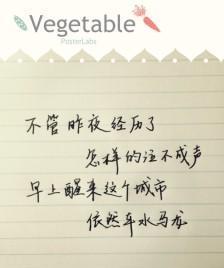 Vegetable
PosterLabs
不管昨夜经历了
怎样的泣不成声
早上醒来这个城市
依然车水马龙